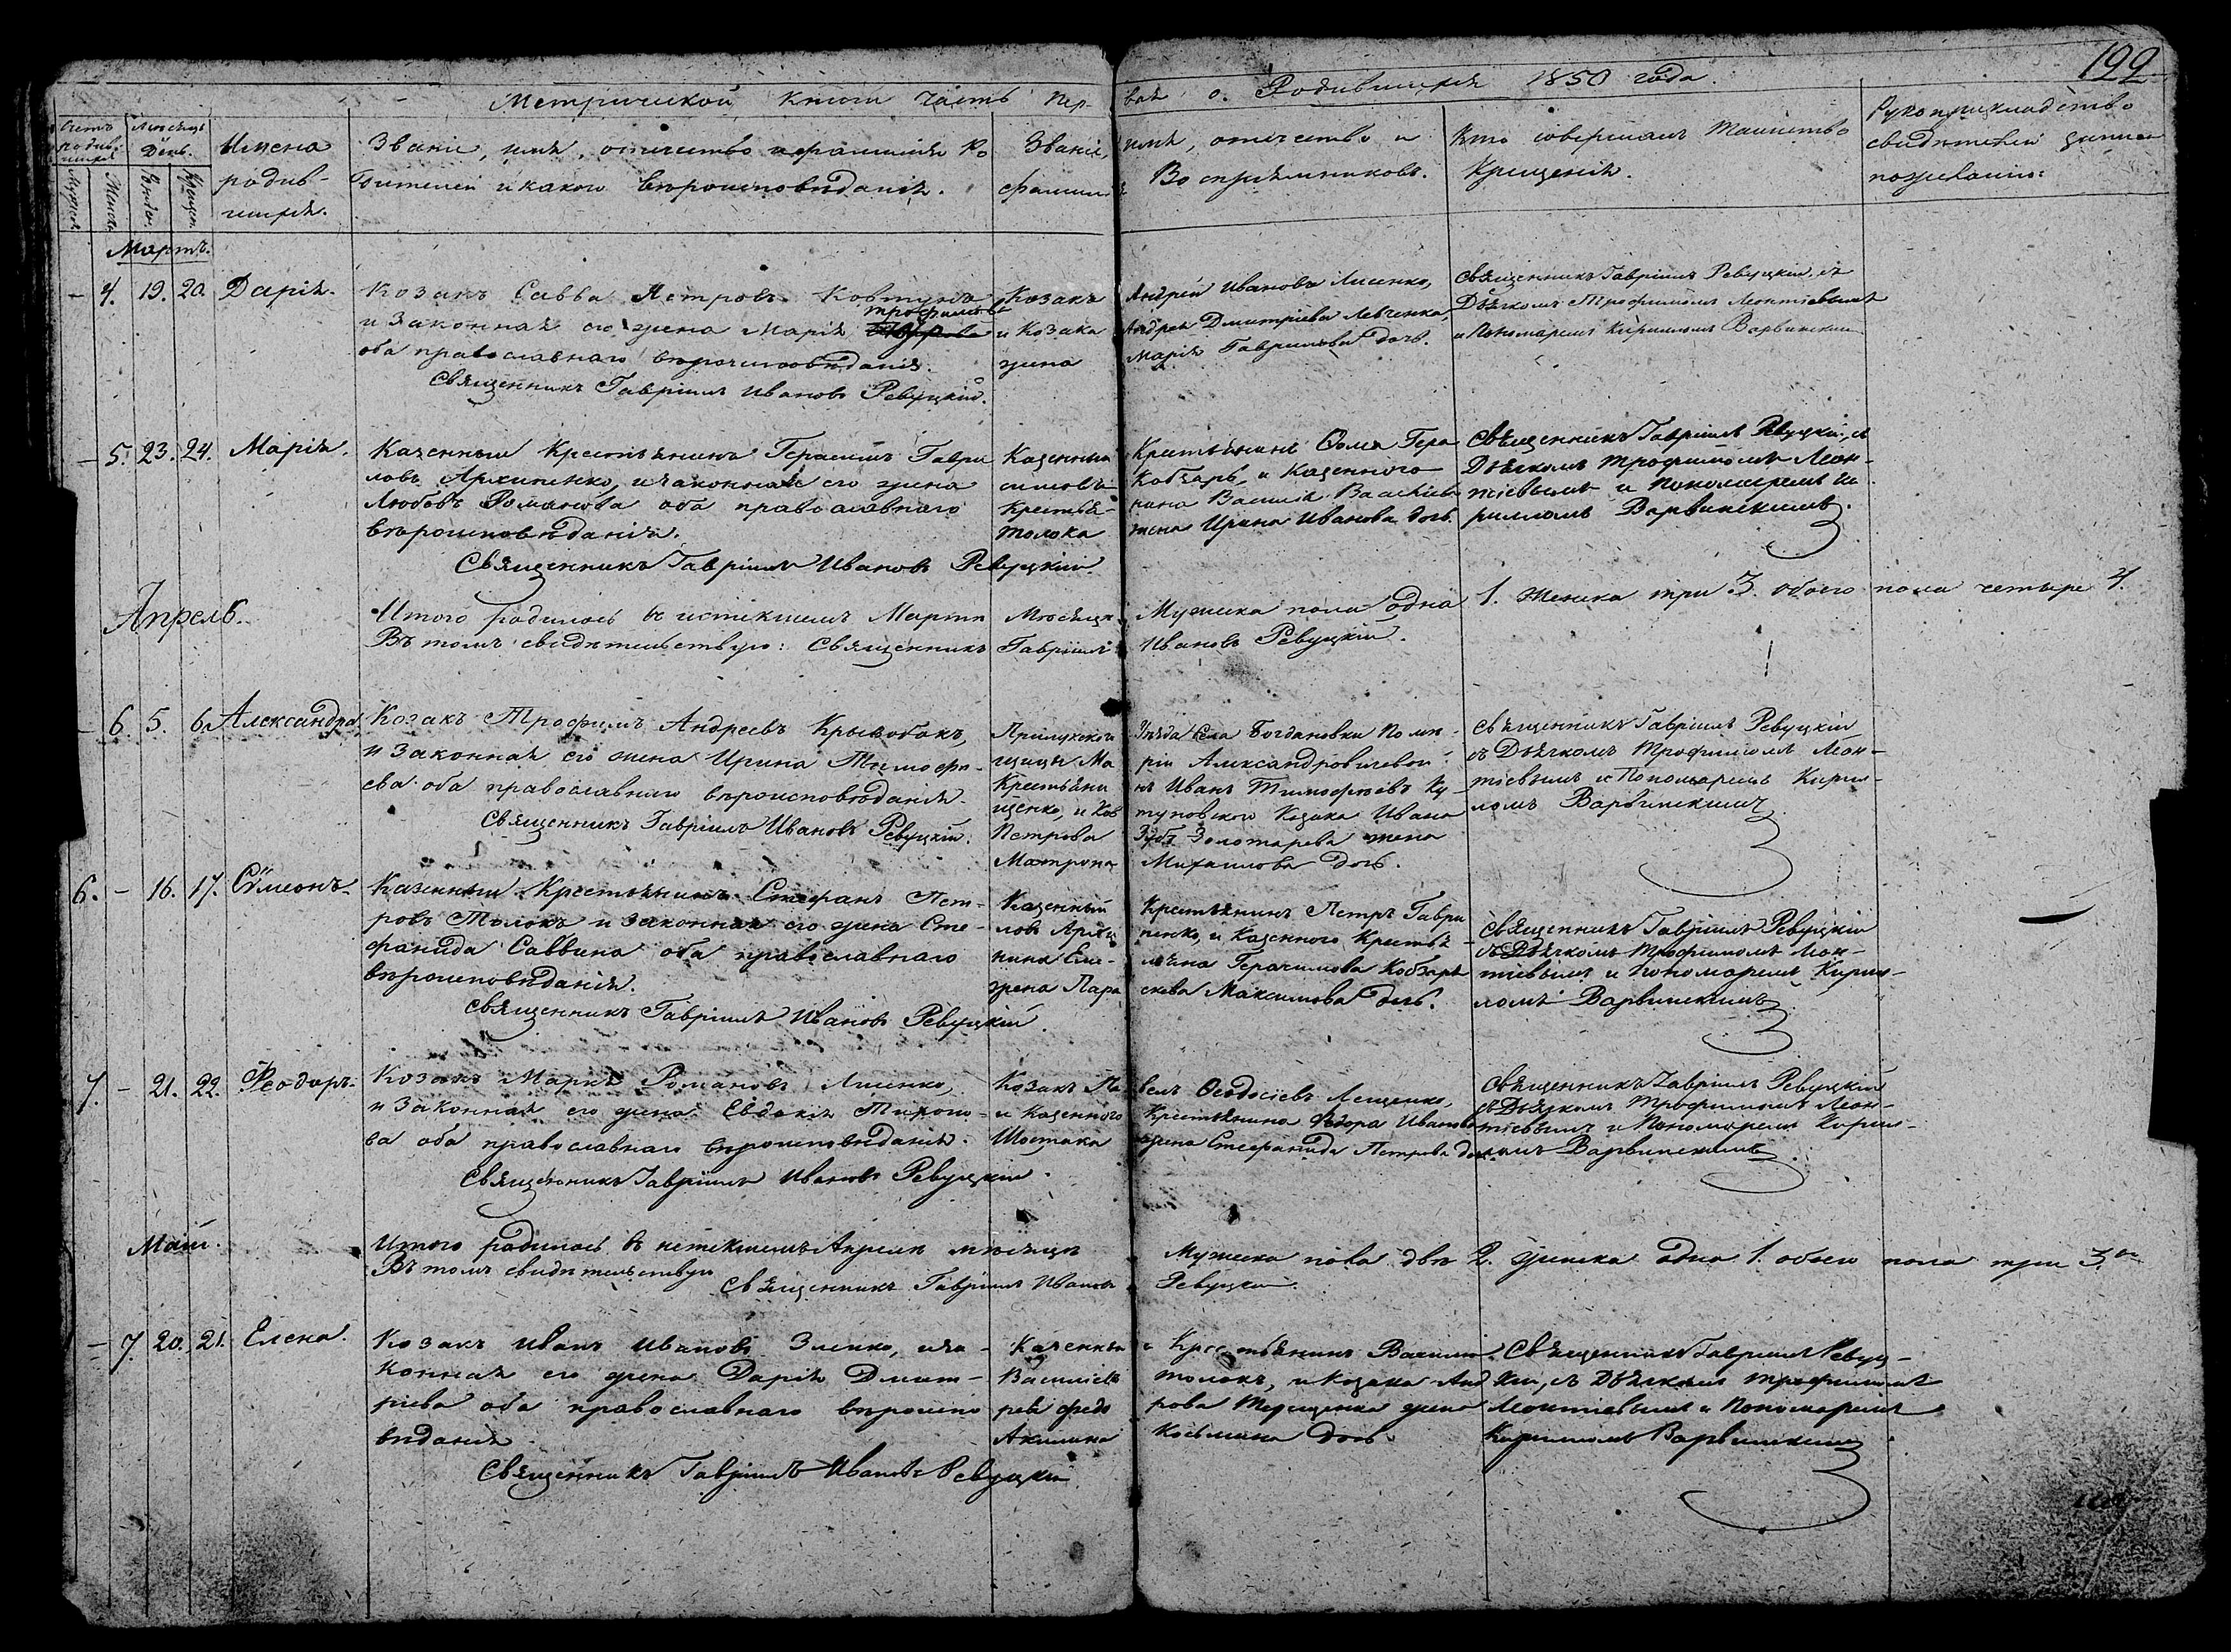 199
Метрической Книги Часть Первая о Родившихся 1850 года.
Счетъ родившихся
Мѣсяцъ День.
Имена родившихся.
Званіе, имя, отчество и фамилія Родителей и какого вѣроисповѣданія.
Званіе, имя, отчество и фамилія Воспріемниковъ.
Кто совершалъ Таинство Крещенія.
Рукоприкладство свидѣтелей записи по желанію:
Мартъ.
– 4. 19. 20. Дарія.
Козакъ Савва Петровъ Ковтунъ
и Законная его жена Марія Трофимова
оба православнаго вѣроисповѣданія.
Священникъ Гавріилъ Ивановъ Ревуцкій.
Козакъ Андрей Ивановъ Лисенко,
и Козака Андрея Дмитріева Левченка,
жена Марія Гаврилова дочь.
Священникъ Гавріилъ Ревуцкій, съ
Дьячкомъ Трофимомъ Леонтіевымъ
и Пономаремъ Кириломъ Варвинским
– 5. 23. 24. Марія.
Казенный Крестьянинъ Герасимъ Гаври
ловъ Архипенко, и законная его жена
Любовъ Романова оба православнаго
вѣроисповѣданія.
Священникъ Гавріилъ Ивановъ Ревуцкій.
Казенный Крестьянинъ Ѳома Гера
симовъ Кобзарь, и Казенного
Крестьянина Василія Васильева
Толока жена Ирина Иванова дочь.
Священникъ Гавріилъ Ревуцкій, съ
Дьячкомъ Трофимомъ Леон-
тіевымъ и Пономаремъ Ки
рилломъ Варвинскимъ.
Апрель.
Итого родилось въ истекшемъ Мартѣ Мѣсяцѣ Мужеска пола одна 1. Женска три 3. обоего пола четыре 4.
Въ томъ свидѣтельствую: Священникъ Гавріилъ Ивановъ Ревуцкій.
– 6. 5. 6. Александра.
Козакъ Трофимъ Андреевъ Крывобокъ,
и Законная его жена Ирина Тимофѣ-
ева оба православнаго вѣроисповѣданія.
Священникъ Гавріилъ Ивановъ Ревуцкій.
Прилукского Уѣзда Села Богдановки Помѣ-
щицы Маріи Александровичевой
Крестьянинъ Иванъ Тимофѣевъ
Ку-
щенко, и Ковтуновского Козака Ивана
Петрова Золотарева жена
Матрона Михаилова дочь.
Священникъ Гавріилъ Ревуцкій
съ Дьячкомъ Трофимомъ Леон-
тіевымъ и Пономаремъ Кири-
ломъ Варвинскимъ
6. – 16. 17. Сѵмеонъ.
Казенный Крестьянинъ Стефанъ Пет-
ровъ Толокъ и законная его жена Сте-
фанида Саввина оба православнаго
вѣроисповѣданія.
Священникъ Гавріилъ Ивановъ Ревуцкій.
Казенный Крестьянинъ Петръ Гаври
ловъ Архипенко, и Казенного Крестья-
нина Герасимова Кобзаря
жена Параскева Максимова дочь.
Священникъ Гавріилъ Ревуцкій
съ Дьячкомъ Трофимомъ Леон-
тіевымъ и Пономаремъ Кири-
ломъ Варвинскимъ
7. – 21. 22. Феодоръ.
Козакъ Марко Романовъ Лисенко,
и Законная его жена Евдокія
оба православнаго вѣроисповѣданія.
Священникъ Гавріилъ Ивановъ Ревуцкій.
Козакъ Павелъ Ѳеодосіевъ Лещенко,
и Казенного Крестьянина Федора Иванова
Шостака жена Стефанида Петрова дочь.
Священникъ Гавріилъ Ревуцкій
съ Дьячкомъ Трофимомъ Леон-
тіевымъ и Пономаремъ Кири-
ломъ Варвинскимъ
Май.
Итого родилось въ истекшемъ Апрелѣ мѣсяцѣ Мужеска пола двѣ 2. Женска одна 1. обоего пола три 3.
Въ томъ свидѣтельствую Священникъ Гавріилъ Ивановъ Ревуцкій.
– 7. 20. 21. Елена.
Козакъ Иванъ Ивановъ Зленко, иза-
конная его жена Дарія Дмит-
ріева оба православнаго вѣроиспо
вѣданія.
Священникъ Гавріилъ Ивановъ Ревуцкій
Казенный Крестьянинъ Василій
Васильевъ Толокъ, и Козака Анд
рея Федорова Терещенка жена
Акилина Косьмина дочь.
Священникъ Гавріилъ Ревуц-
кій, съ Дьячкомъ Трофимомъ
Леонтіевымъ и Пономаремъ
Кириломъ Варвинским